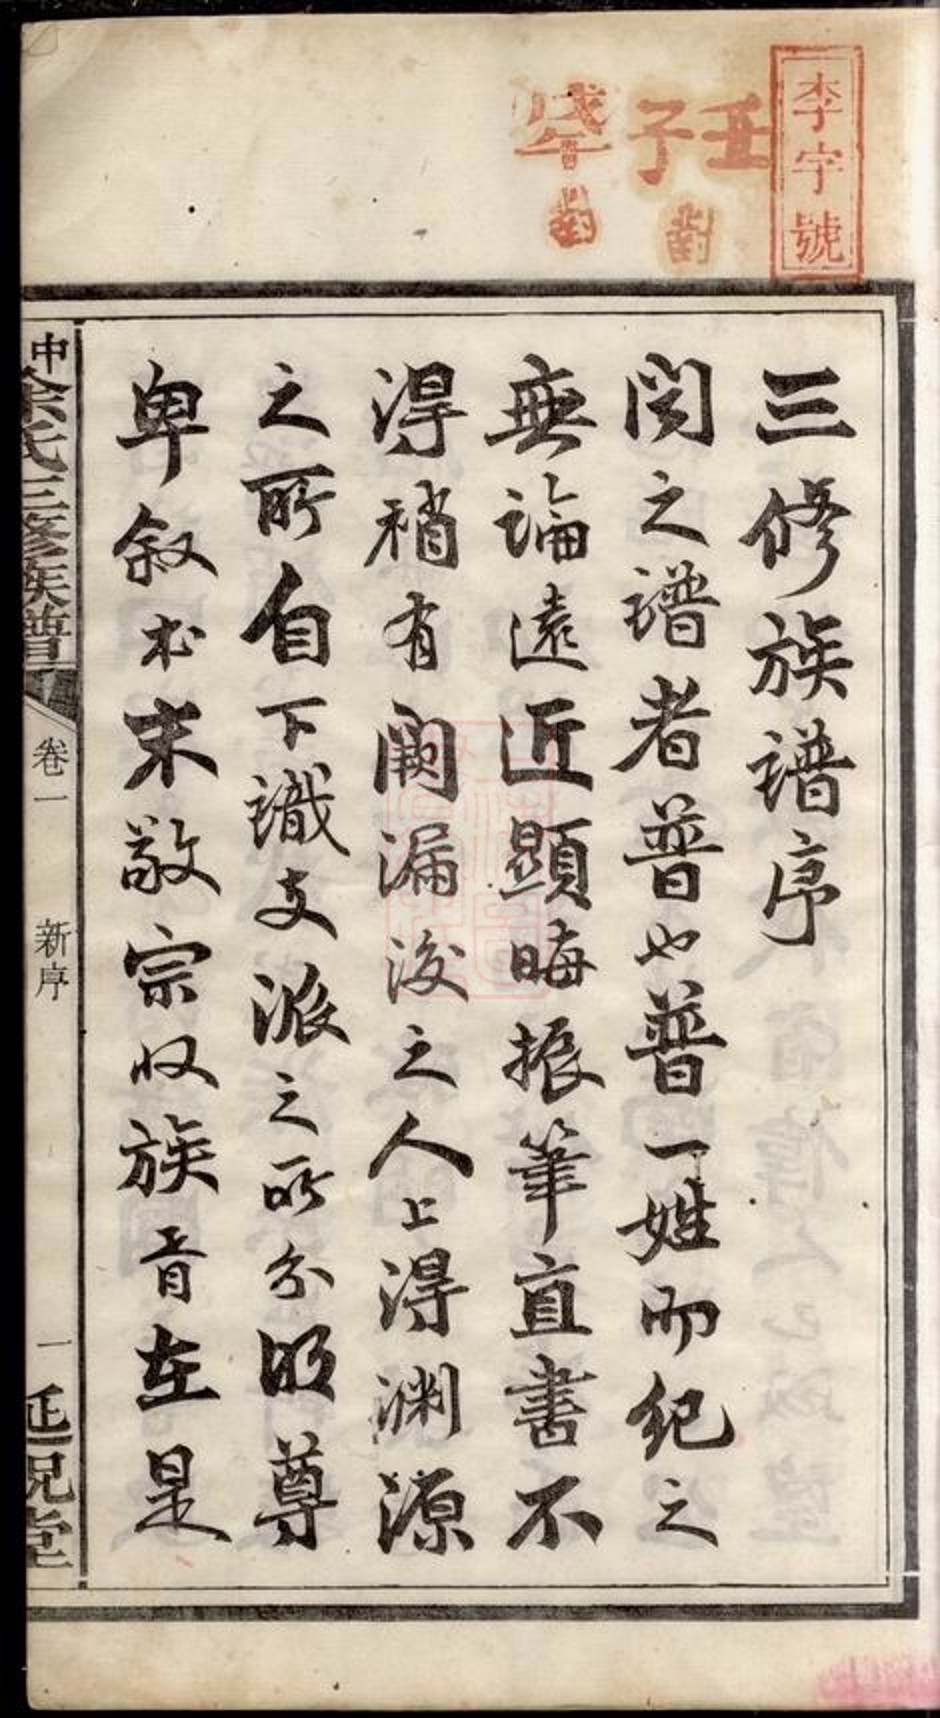 李字號
壬子
對
戊年
對
三修族譜序
閱之譜者普也普一姓而紀之
無論遠近顯晦振筆直書不
得稍有闕漏後之人上得淵源
之所自下識支派之所分明尊
卑叙本末敬宗收族胥在是
余氏三修族譜
卷一
新序
一